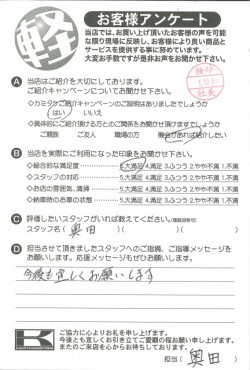 軽
お客様アンケート
当店では、お買い上げ頂いたお客様の声を可能
な限り現場に反映し、お客様により良い商品と
サービスを提供する事に努めています。
大変お手数ですが是非お声をお聞かせ下さい。
社長
A 当店はご紹介を大切にしてあります。
ご紹介キャンペーンについてお聞かせ下さい。
◇カミタケご紹介キャンペーンのご説明はありましたでしょうか
はい いいえ
◇具体的にご紹介頂ける方とのご関係をお聞かせ頂けますでしょうか
ご親族 ご友人 職場の方 機会があれば紹介したい
B 当店を実際にご利用になった印象をお聞かせ下さい。
◇総合的な満足度 5.大満足 4.満足 3.ふつう 2.やや不満 1.不満
◇スタッフの対応 5.大満足 4.満足 3.ふつう 2.やや不満 1.不満
◇お店の雰囲気、清掃 5.大満足 4.満足 3.ふつう 2.やや不満 1.不満
◇納車時のお車の状態 5.大満足 4.満足 3.ふつう 2.やや不満 1.不満
C 評価したいスタッフがいれば教えてください。(複数回答可)
スタッフ名( 奥田 )( )( )
D 担当させて頂きましたスタッフへのご指摘、ご指導メッセージを
お願いします。応援メッセージもぜひお願いします。
今後も宜しくお願いします
K
ご協力に心よりお礼を申し上げます。
今後とも宜しくお引き立てご愛顧の程お願い申し上げます。
またのご来店を心からお待ちしております。
担当( 奥田 )